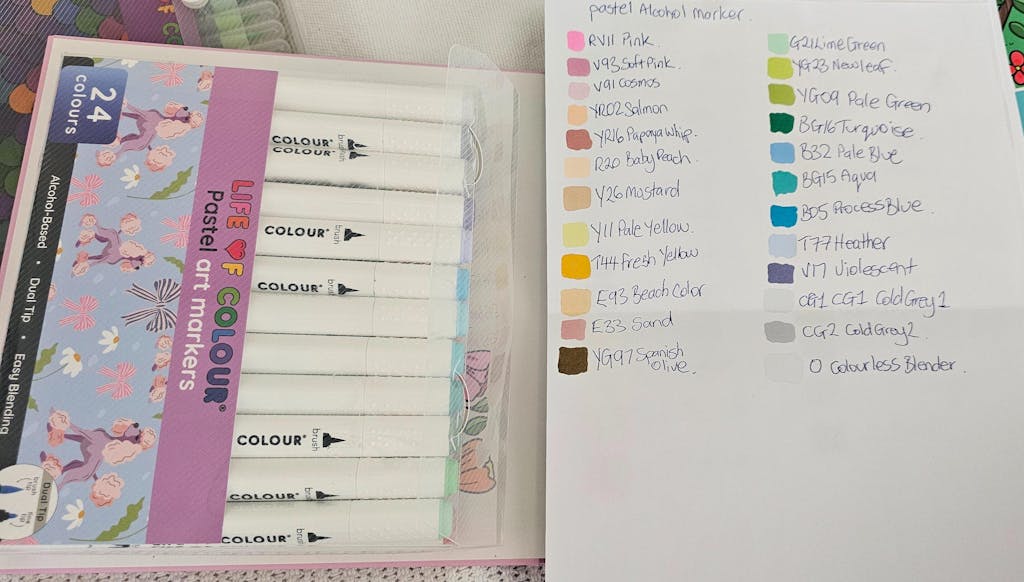 24
colours
Alcohol-Based • Dual Tip • Easy Blending
LIFE OF COLOUR®
Pastel art markers
Dual Tip
brush
tip
fine
tip
COLOUR® brush
COLOUR®
COLOUR® brush
COLOUR® brush
COLOUR® brush
COLOUR® brush
COLOUR® brush
pastel Alcohol marker.
RV11 Pink.
V93 Soft Pink.
V91 Cosmos
YR02 Salmon
YR16 Papaya Whip.
R20 Baby Peach.
Y26 Mostard
Y11 Pale Yellow.
T44 Fresh Yellow
E93 Beach Color
E33 Sand
YG97 Spanish
olive.
G21 Lime Green
YG23 New leaf.
YG09 Pale Green
BG16 Turquoise.
B32 Pale Blue
BG15 Aqua
B05 Process Blue.
T77 Heather
V17 Violescent
CG1 CG1 Cold Grey 1
CG2 Cold Grey 2.
0 Colourless Blender.